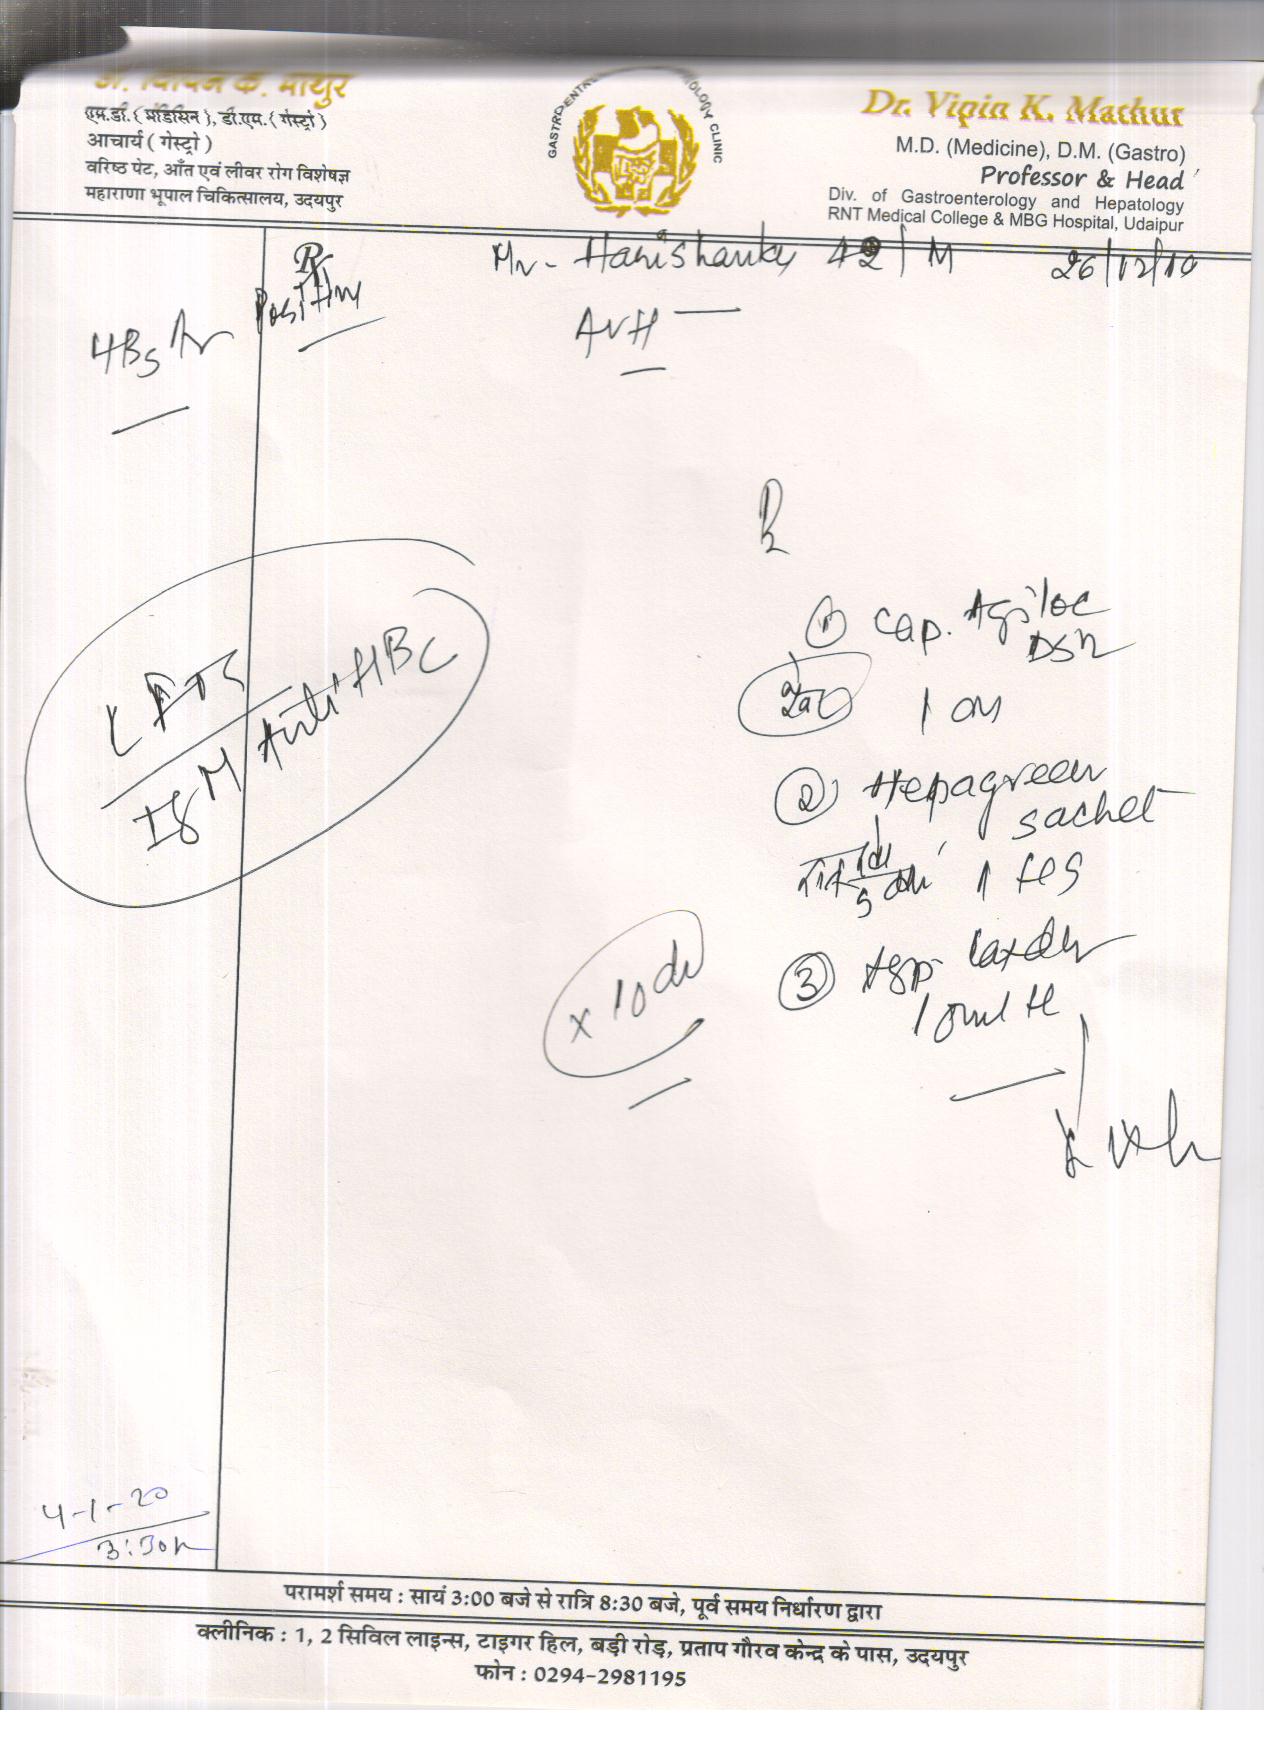 डॉ. विपिन क. माथुर
एम.डी. ( मेडिसिन ), डी.एम. ( गेस्ट्रो )
आचार्य ( गेस्ट्रो )
वरिष्ठ पेट, आँत एवं लीवर रोग विशेषज्ञ
महाराणा भूपाल चिकित्सालय, उदयपुर
CLINIC
Dr. Vipin K. Mathur
M.D. (Medicine), D.M. (Gastro)
Professor & Head
Div. of Gastroenterology and Hepatology
RNT Medical College & MBG Hospital, Udaipur
Rx
Mr. Harishanker 42 / M 26/12/19
HBsAg Positive
AVH
LFTS
IgM Anti HBC
R
① Cap. Agiloc
DSR
1 OM
② Hepagreen
sachet
1 HS
③ Syp.
10ml H
x 10 d
4-1-20
3:30
परामर्श समय : सायं 3:00 बजे से रात्रि 8:30 बजे, पूर्व समय निर्धारण द्वारा
क्लीनिक : 1, 2 सिविल लाइन्स, टाइगर हिल, बड़ी रोड़, प्रताप गौरव केन्द्र के पास, उदयपुर
फोन : 0294-2981195